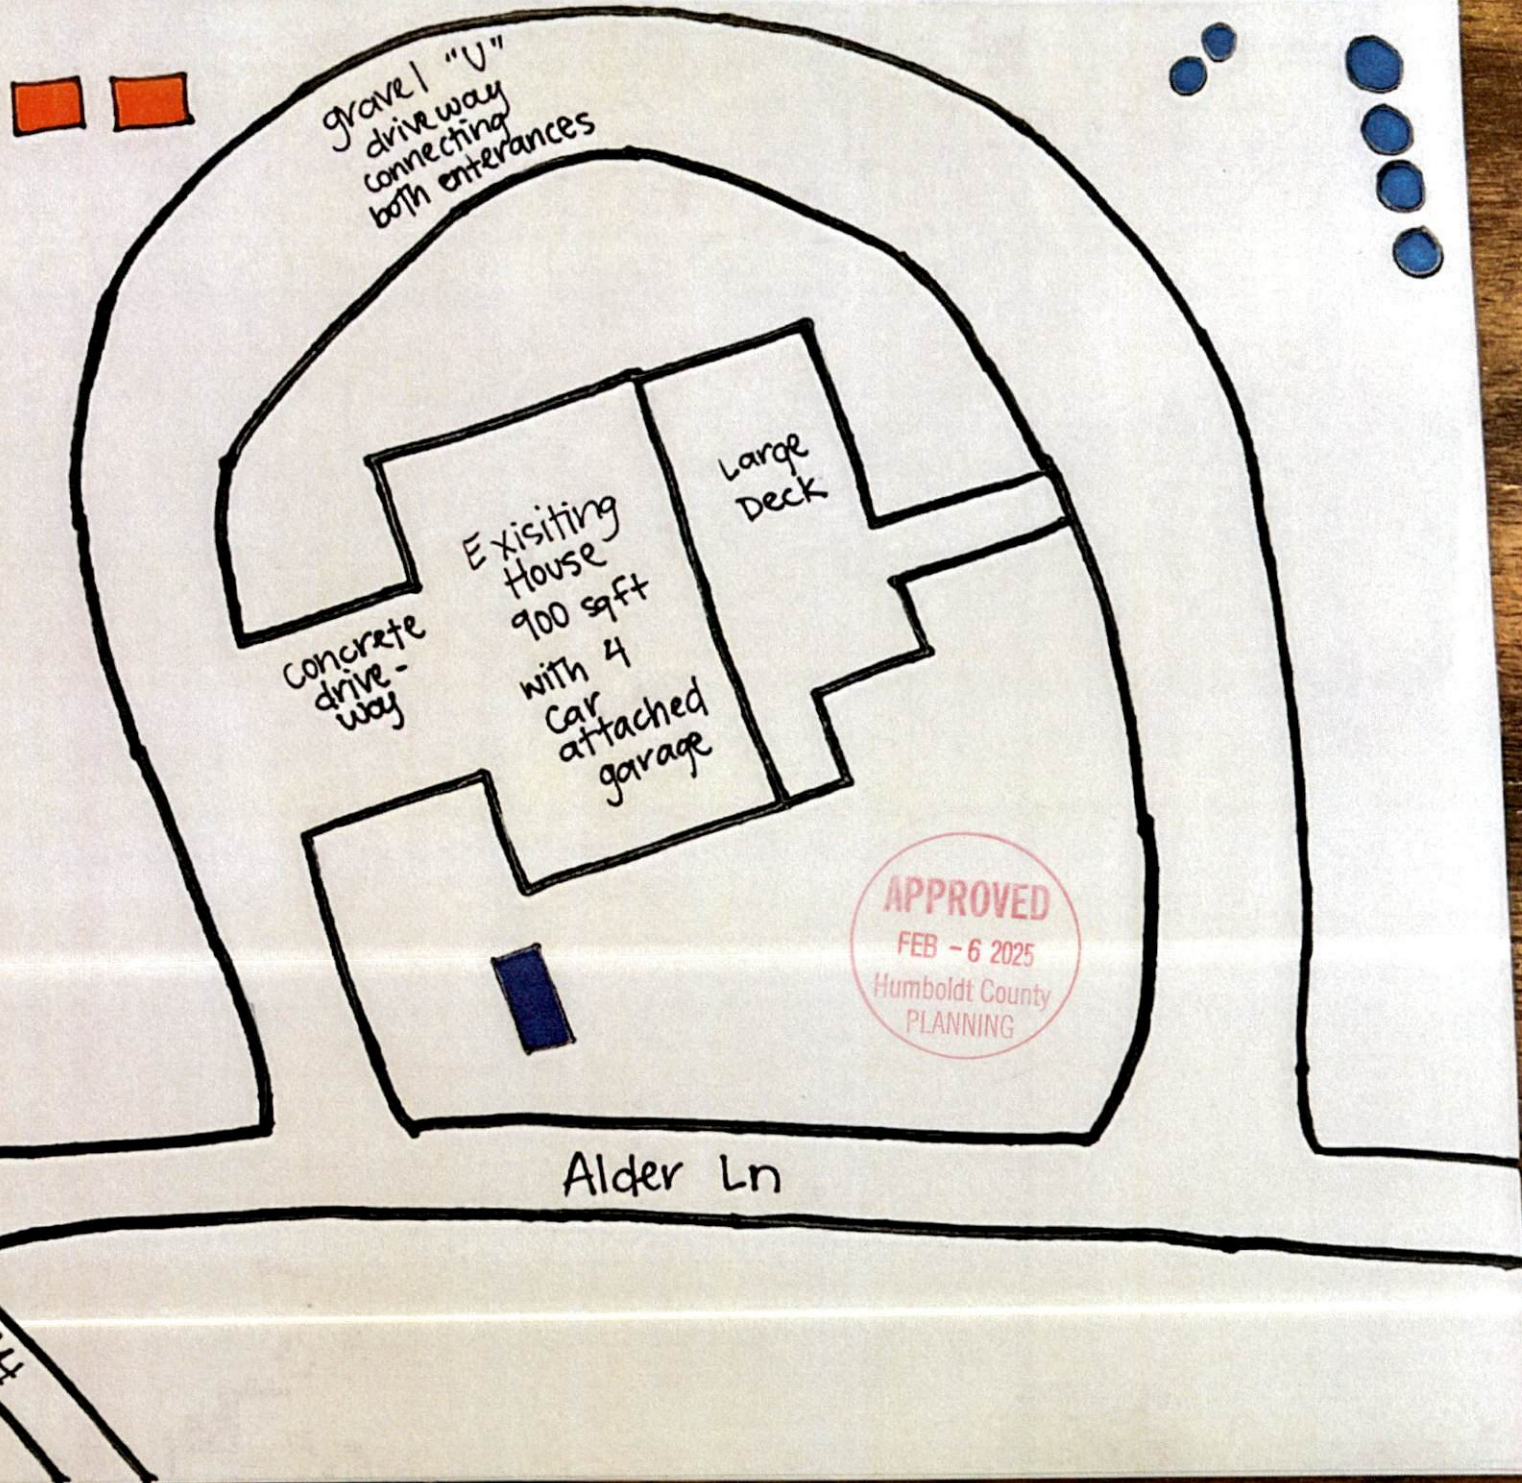 gravel "U"
driveway
connecting
both enterances
Large
Deck
Exisiting
House
900 sqft
with 4
car
attached
garage
concrete
drive-
way
APPROVED
FEB - 6 2025
Humboldt County
PLANNING
Alder Ln